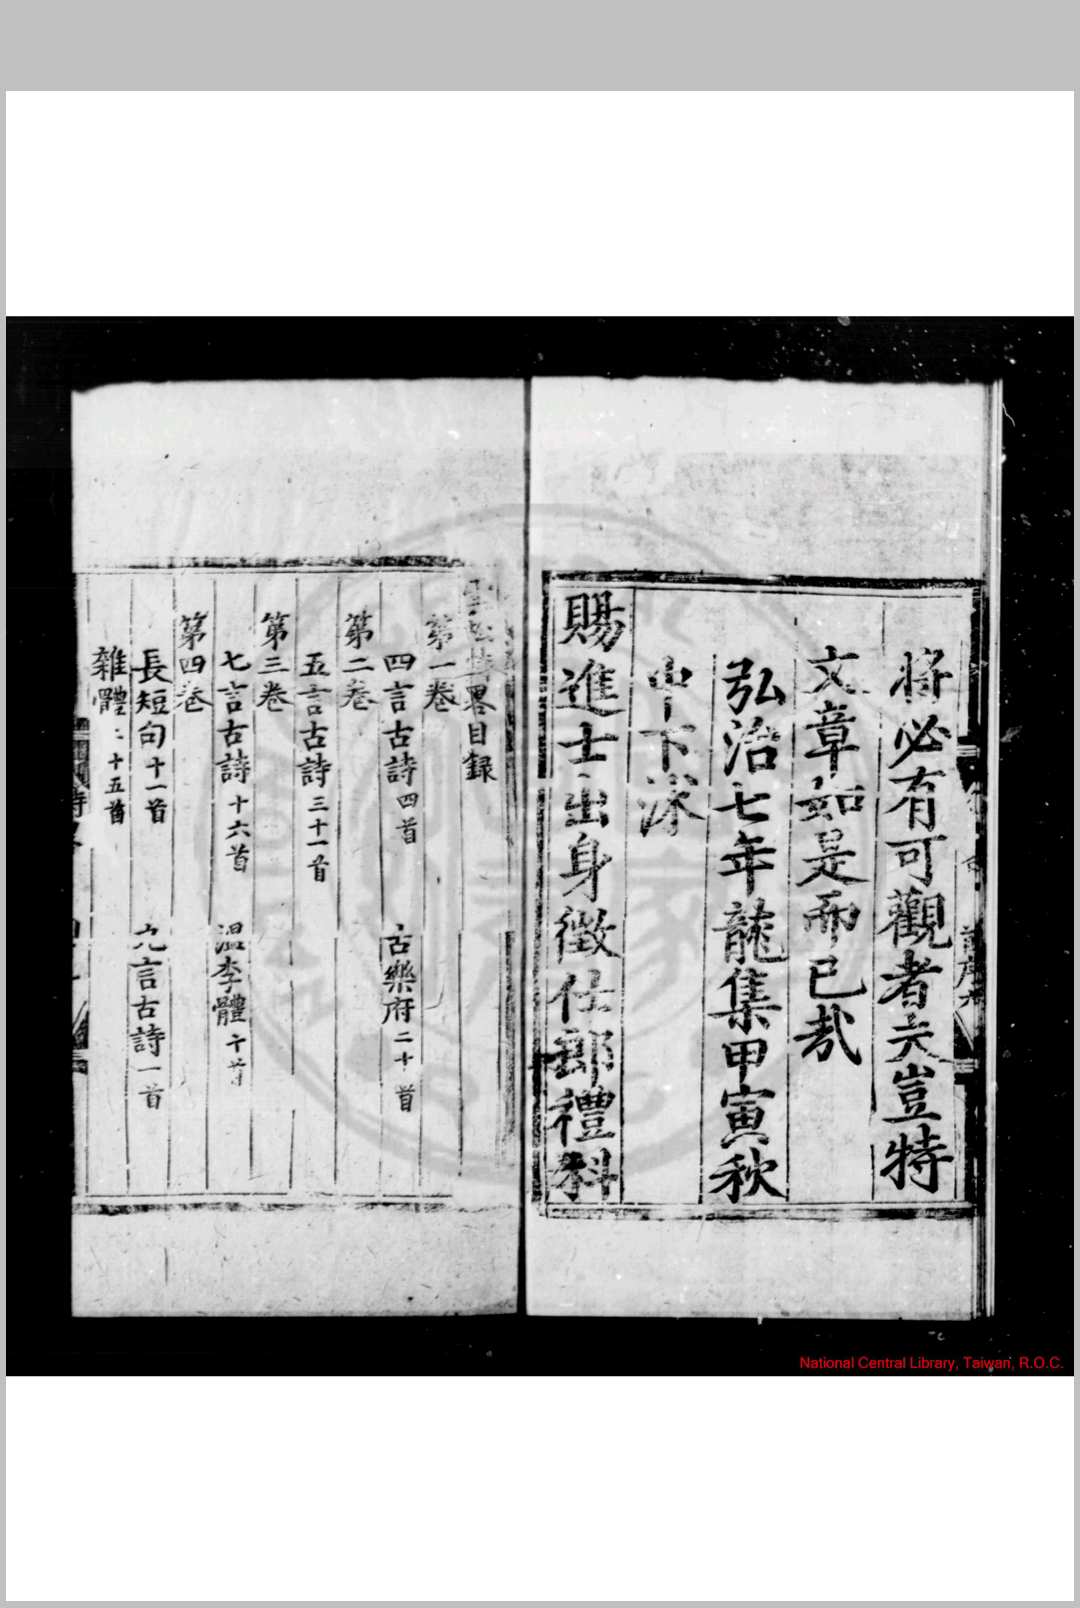 將必有可觀者夫豈特
文章如是而已哉
弘治七年龍集甲寅秋
中下浣
賜進士出身徵仕郎禮科
詩畧目録
第一卷
四言古詩四首 古樂府二十首
第二卷
五言古詩三十一首
第三卷
七言古詩十六首 温李體
第四卷
長短句十一首 九言古詩一首
雜體二十五首
National Central Library, Taiwan, R.O.C.